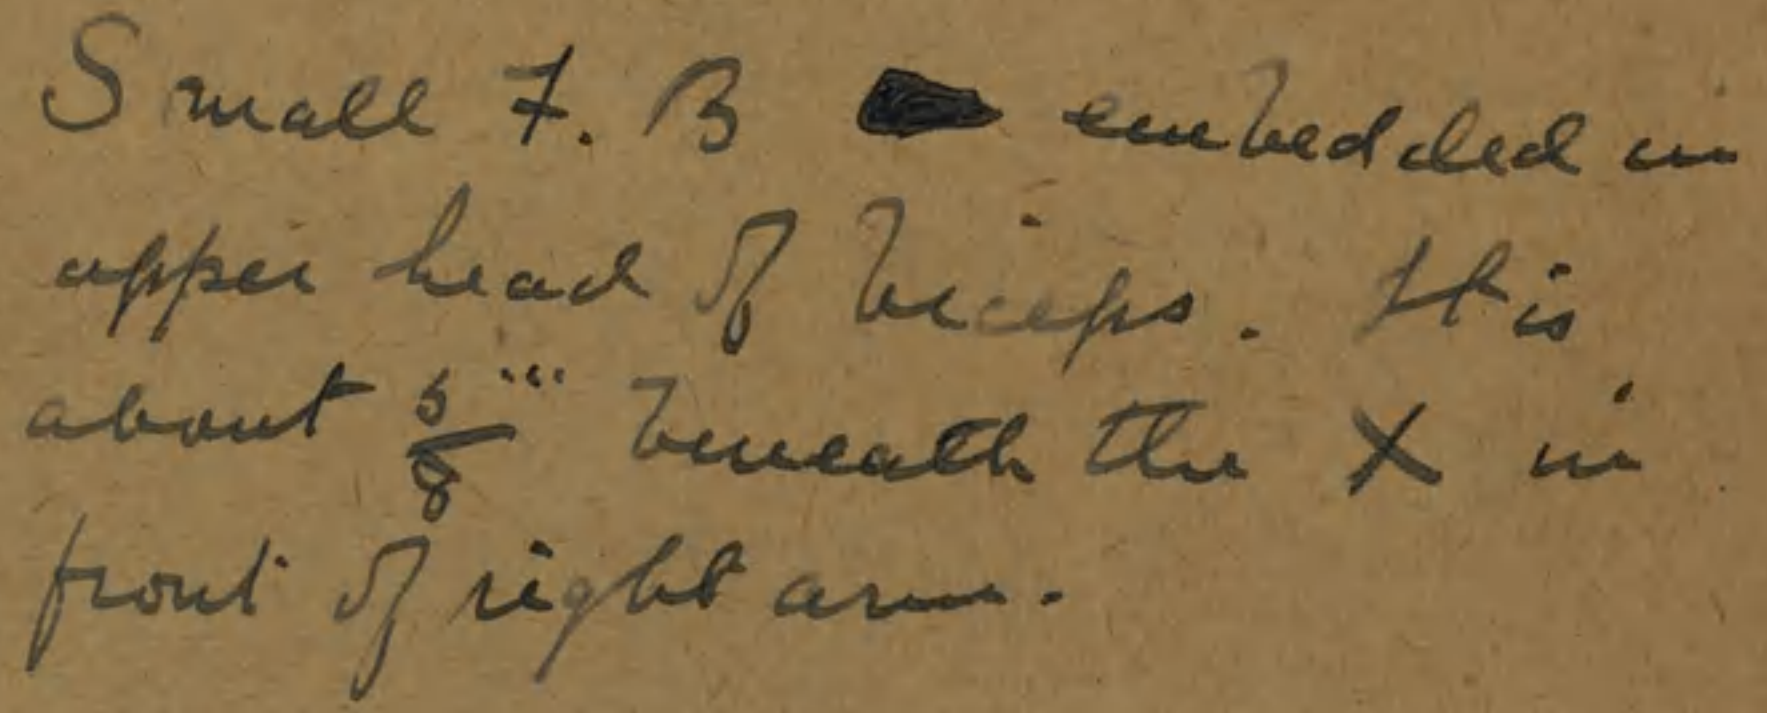 Small F. B embedded in
upper head of biceps. It is
about 5/8''' beneath the X in
front of right arm.